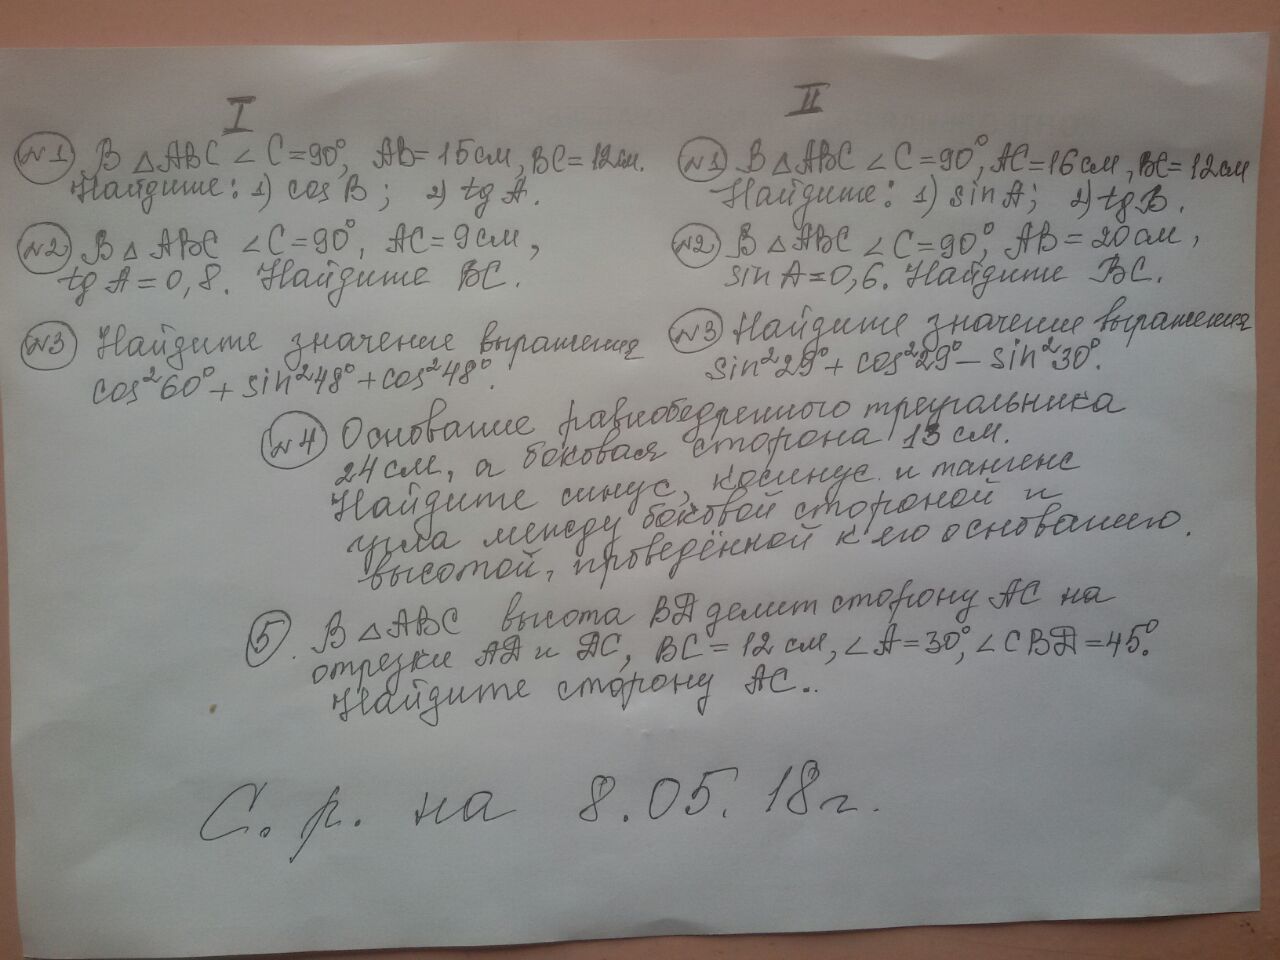 I
№1 В △ABC ∠C=90°, AB=15см, BC=12см.
Найдите: 1) cos B; 2) tg A.
№2 В △ABC ∠C=90°, AC=9см,
tg A=0,8. Найдите BC.
№3 Найдите значение выражения
cos²60°+sin²48°+cos²48°.
II
№1 В △ABC ∠C=90°, AC=16см, BC=12см
Найдите: 1) sin A; 2) tg B.
№2 В △ABC ∠C=90°, AB=20см,
sin A=0,6. Найдите BC.
№3 Найдите значение выражения
sin²29°+cos²29°−sin²30°.
№4 Основание равнобедренного треугольника
24см, а боковая сторона 13см.
Найдите синус, косинус и тангенс
угла между боковой стороной и
высотой, проведённой к его основанию.
5. В △ABC высота BД делит сторону AC на
отрезки AД и ДC, BC=12см, ∠A=30°, ∠CBД=45°.
Найдите сторону AC..
С. р. на 8.05.18г.